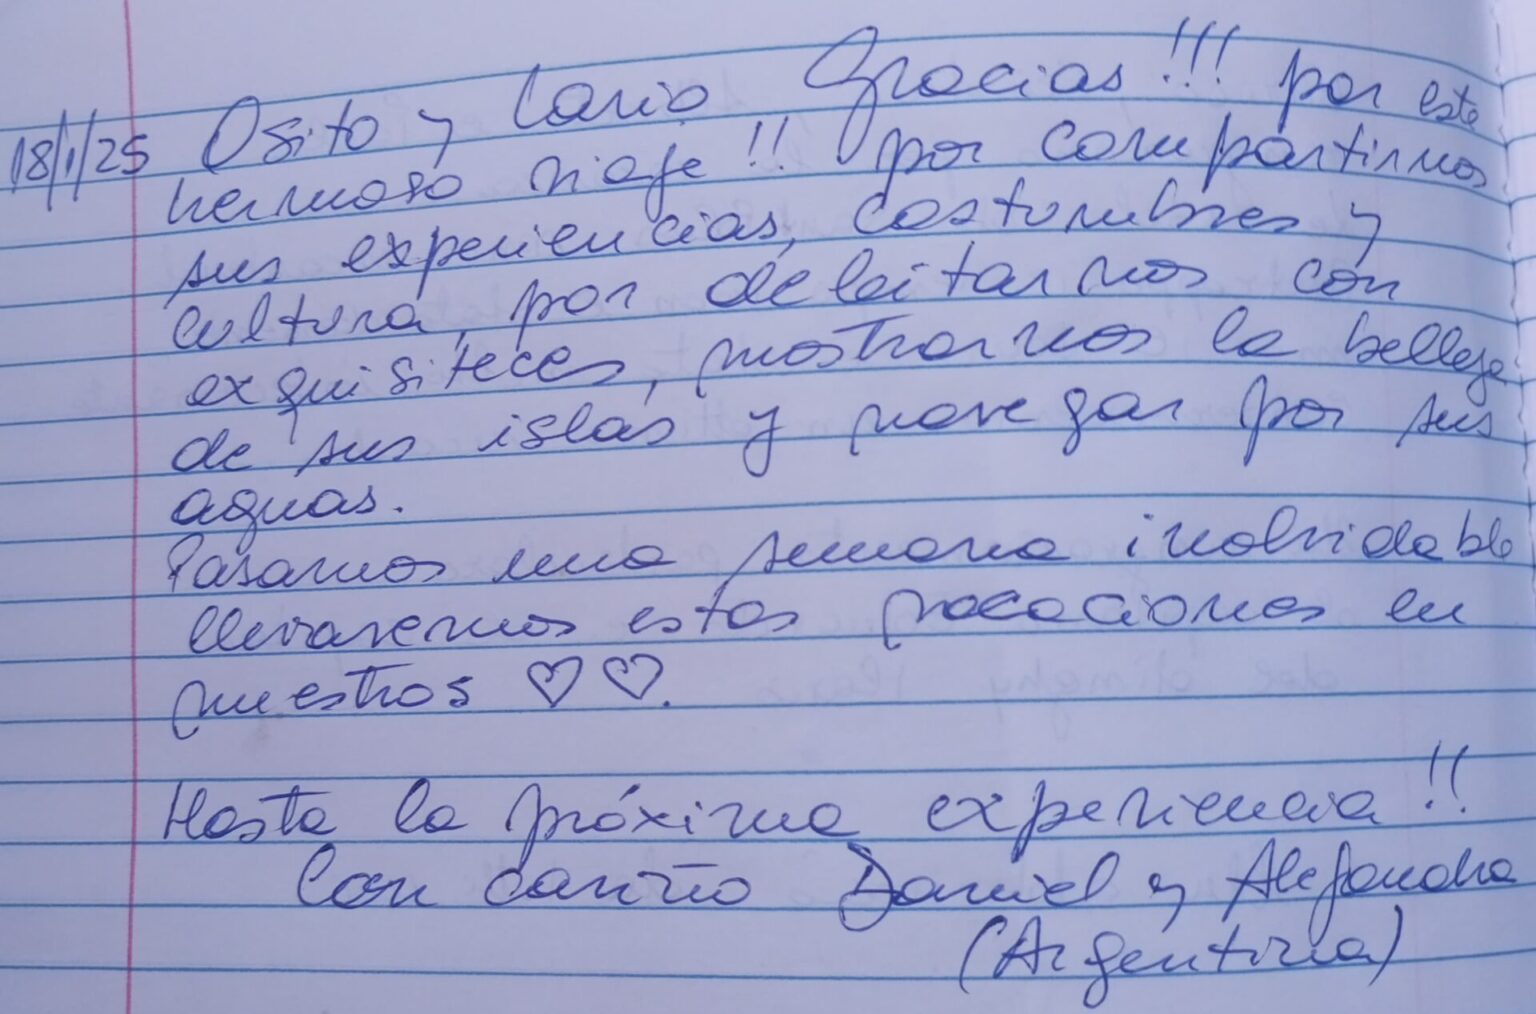 18/1/25 Osito y Cario Gracias!!! por este
hermoso viaje!! por compartirnos
sus experiencias, costumbres y
cultura, por deleitarnos con
exquisiteces, mostrarnos la belleza
de sus islas y navegar por sus
aguas.
Pasamos una semana inolvidable
llevaremos estas vacaciones en
nuestros ♡ ♡.
Hasta la próxima experiencia!!
Con cariño Daniel y Alejandra
(Argentina)